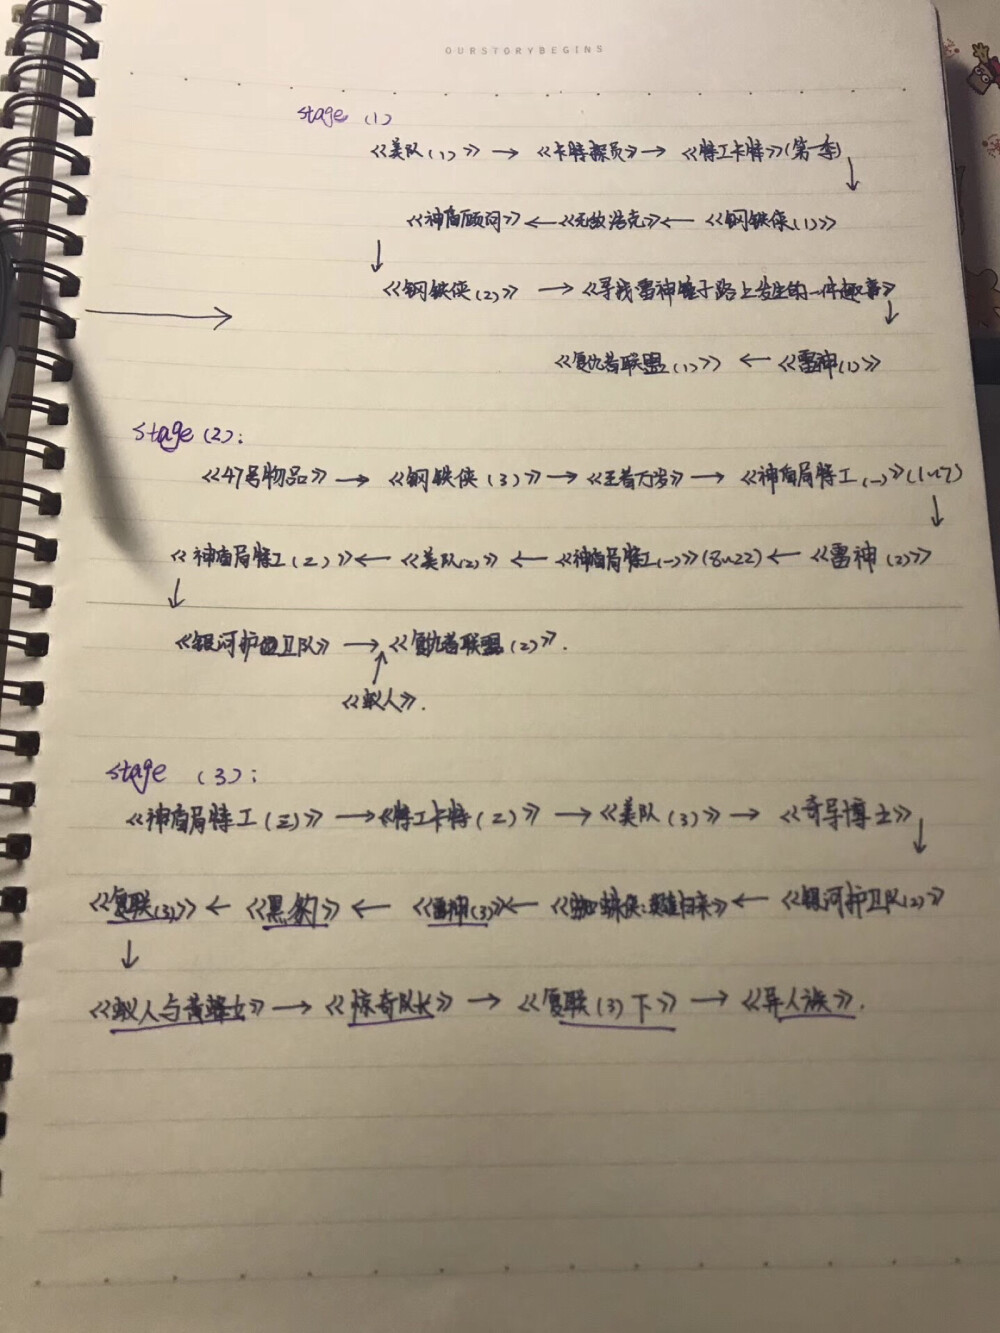 OURSTORYBEGINS
stage (1)
《美队(1)》 → 《卡特探员》 → 《特工卡特》(第一季)
↓
《神盾顾问》 ← 《无敌浩克》 ← 《钢铁侠(1)》
↓
《钢铁侠(2)》 → 《寻找雷神锤子路上发生的一件趣事》
→ ↓
《复仇者联盟(1)》 ← 《雷神(1)》
stage (2):
《47号物品》 → 《钢铁侠(3)》 → 《王者万岁》 → 《神盾局特工(一)》(1~7)
↓
《神盾局特工(2)》 ← 《美队(2)》 ← 《神盾局特工(一)》(8~22) ← 《雷神(2)》
↓
《银河护卫队》 → 《复仇者联盟(2)》.
↑
《蚁人》.
stage (3):
《神盾局特工(三)》 → 《特工卡特(2)》 → 《美队(3)》 → 《奇异博士》
↓
《复联(3)》 ← 《黑豹》 ← 《雷神(3)》 ← 《蜘蛛侠:英雄归来》 ← 《银河护卫队(2)》
↓
《蚁人与黄蜂女》 → 《惊奇队长》 → 《复联(3)下》 → 《异人族》.